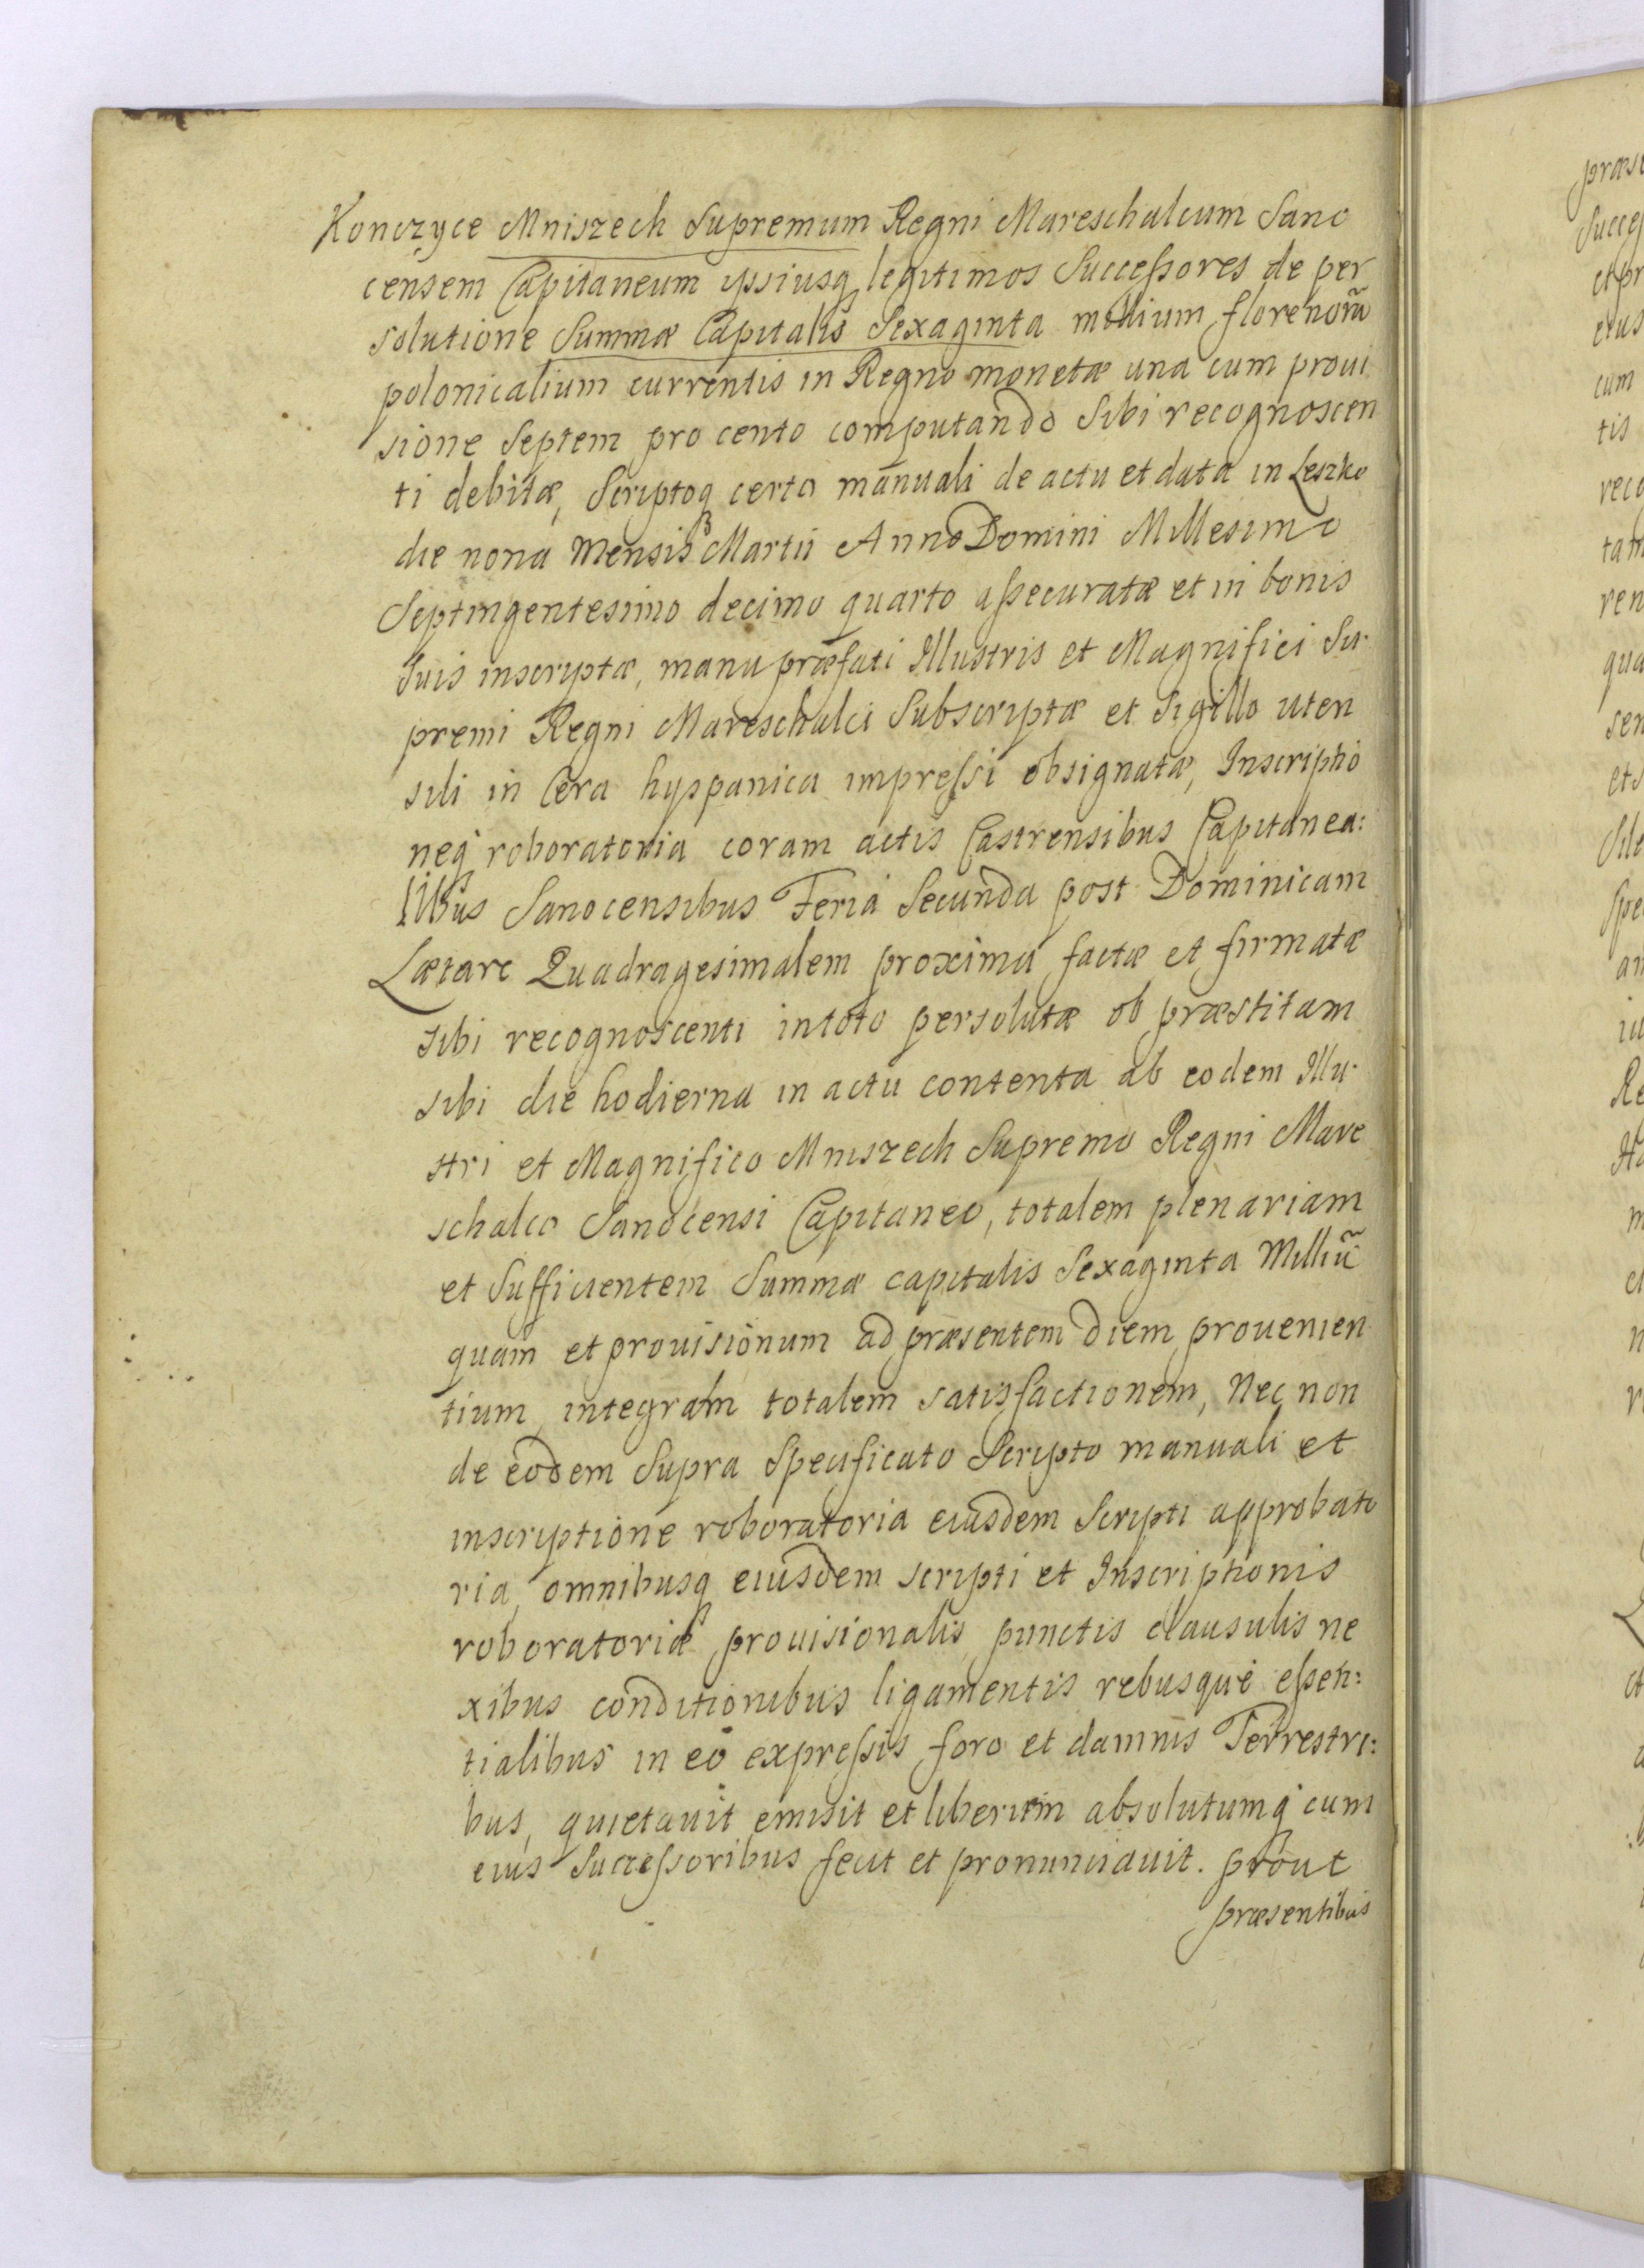 Konczyce Mniszech Supremum Regni Mareschalcum Sano
censem Capitaneum ipsiusq legitimos Successores de per
solutione Summæ Capitalis Sexaginta millium florenorũ
polonicalium currentis in Regno monetæ una cum proui
sione Septem pro cento computando Sibi recognoscen
ti debitæ, Scriptoq certo manuali de actu et data in Leszko
die nona Mensis Martii Anno Domini Millesimo
Septingentesimo decimo quarto assecuratæ et in bonis
Suis inscriptæ, manu præfati Illustris et Magnifici Su-
premi Regni Mareschalci Subscriptæ et Sigillo uten
sili in Cera hyspanica impressi obsignatæ, Inscriptio
neq roboratoria coram actis Castrensibus Capitanea:
libus Sanocensibus Feria Secunda post Dominicam
Lætare Quadragesimalem proxima factæ et firmatæ
sibi recognoscenti in toto persolutæ ob præstitam
sibi die hodierna in actu contenta ab eodem Illu-
stri et Magnifico Mniszech Supremo Regni Mare
schalco Sanocensi Capitaneo, totalem plenariam
et Sufficientem Summæ capitalis Sexaginta Milliũ
quam et prouisionum ad præsentem diem prouenien
tium integram totalem satisfactionem, Nec non
de eodem Supra Specificato Scripto manuali et
inscriptione roboratoria eiusdem Scripti approbato
ria, omnibusq eiusdem scripti et Inscriptionis
roboratoriæ prouisionalis, punctis clausulis ne
xibus conditionibus ligamentis rebusque essen:
tialibus in eo expressis foro et damnis Terrestri:
bus, quietauit emisit et liberum absolutumq cum
eius Successoribus fecit et pronunciauit. prout
præsentibus
præse
Succes
et pr
eius
cum
tis
reco
tam
ren
qua
sen
ets
Spe
an
Re